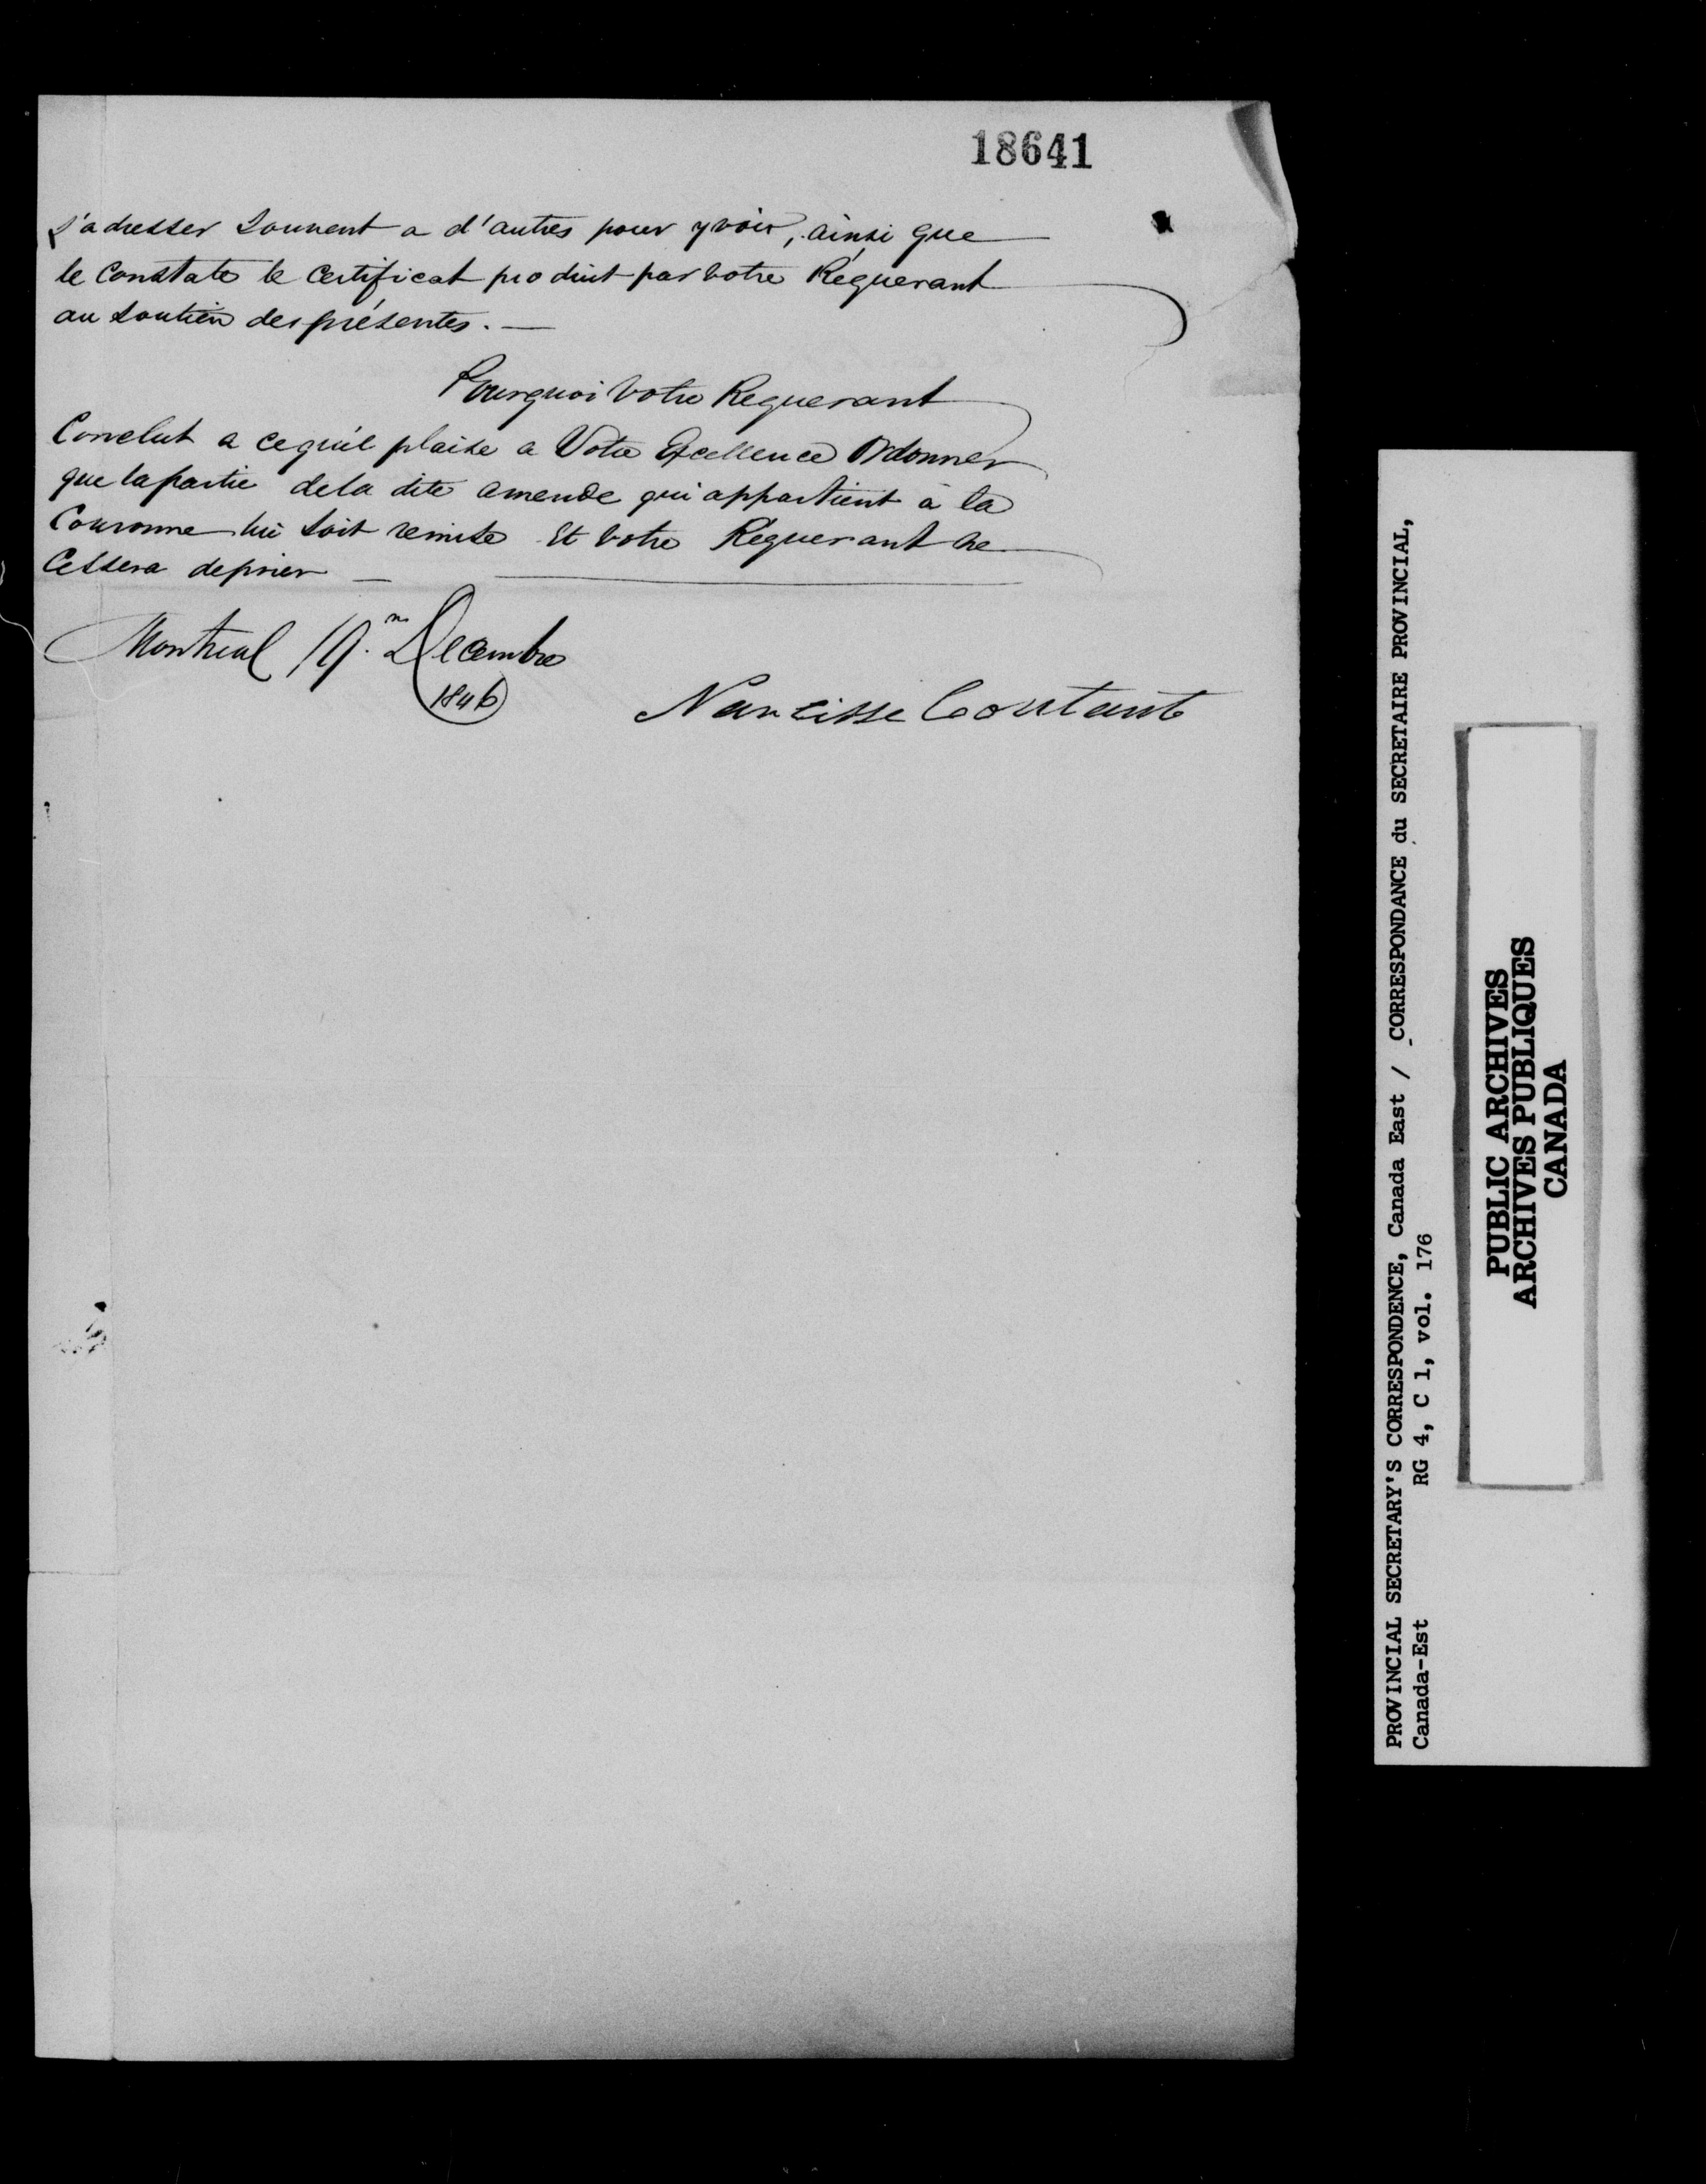 18641
s'adresser souvent a d'autres pour y voir, ainsi que
le constate le certificat produit par votre Réquerant
au soutien des présentes. —
Pourquoi votre Requerant
Conclut a ce qu'il plaise a Votre Excellence Ordonner
que la partie de la dite amende qui appartient à la
Couronne lui soit remise Et votre Réquerant ne
Cessera de prier —
Montreal Decembre
1846
Narcisse Coutant
PROVINCIAL SECRETARY'S CORRESPONDENCE, Canada East / CORRESPONDANCE du SECRETAIRE PROVINCIAL,
Canada-Est RG 4, C 1, vol. 176
PUBLIC ARCHIVES
ARCHIVES PUBLIQUES
CANADA